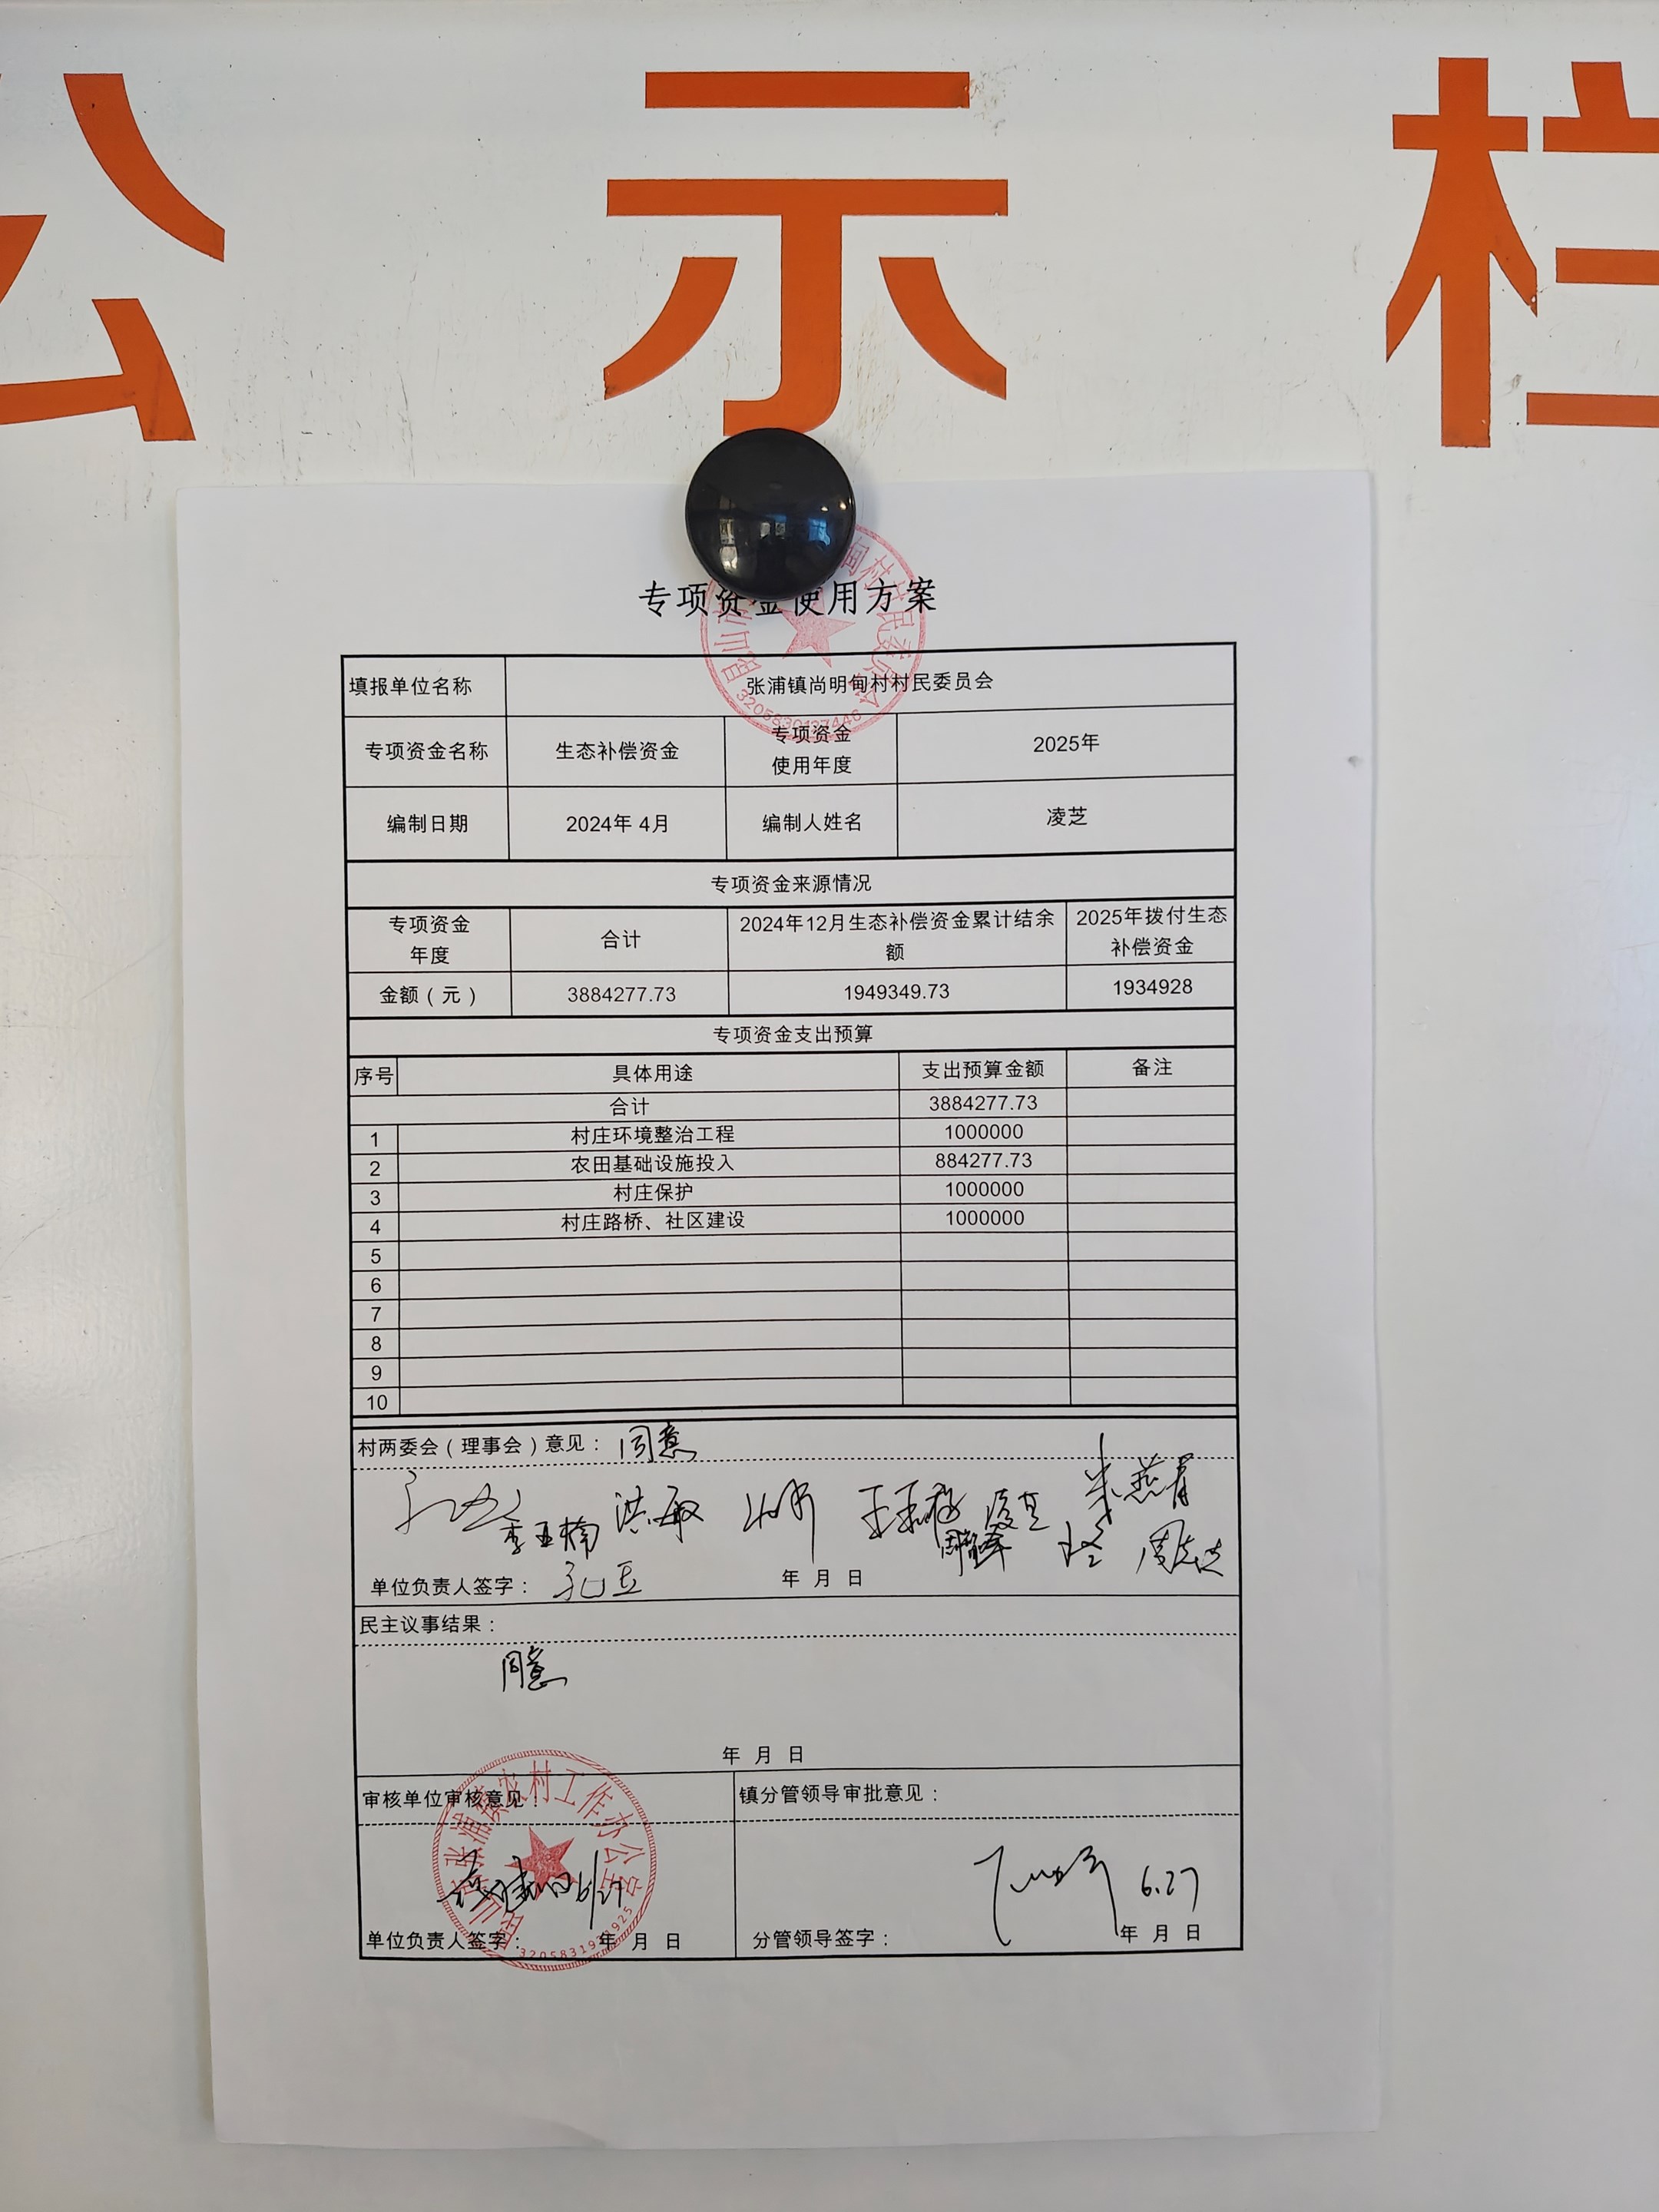 公示栏
专项资金使用方案
填报单位名称 张浦镇尚明甸村村民委员会
专项资金名称 生态补偿资金 专项资金 使用年度 2025年
编制日期 2024年 4月 编制人姓名 凌芝
专项资金来源情况
专项资金 年度 合计 2024年12月生态补偿资金累计结余额 2025年拨付生态补偿资金
金额（元） 3884277.73 1949349.73 1934928
专项资金支出预算
序号 具体用途 支出预算金额 备注
合计 3884277.73
1 村庄环境整治工程 1000000
2 农田基础设施投入 884277.73
3 村庄保护 1000000
4 村庄路桥、社区建设 1000000
5
6
7
8
9
10
村两委会（理事会）意见： 同意
李亚楠 洪敏 朱燕青
单位负责人签字： 年 月 日
民主议事结果：
同意
年 月 日
审核单位审核意见： 镇分管领导审批意见：
6/27 6.27
单位负责人签字： 年 月 日 分管领导签字： 年 月 日